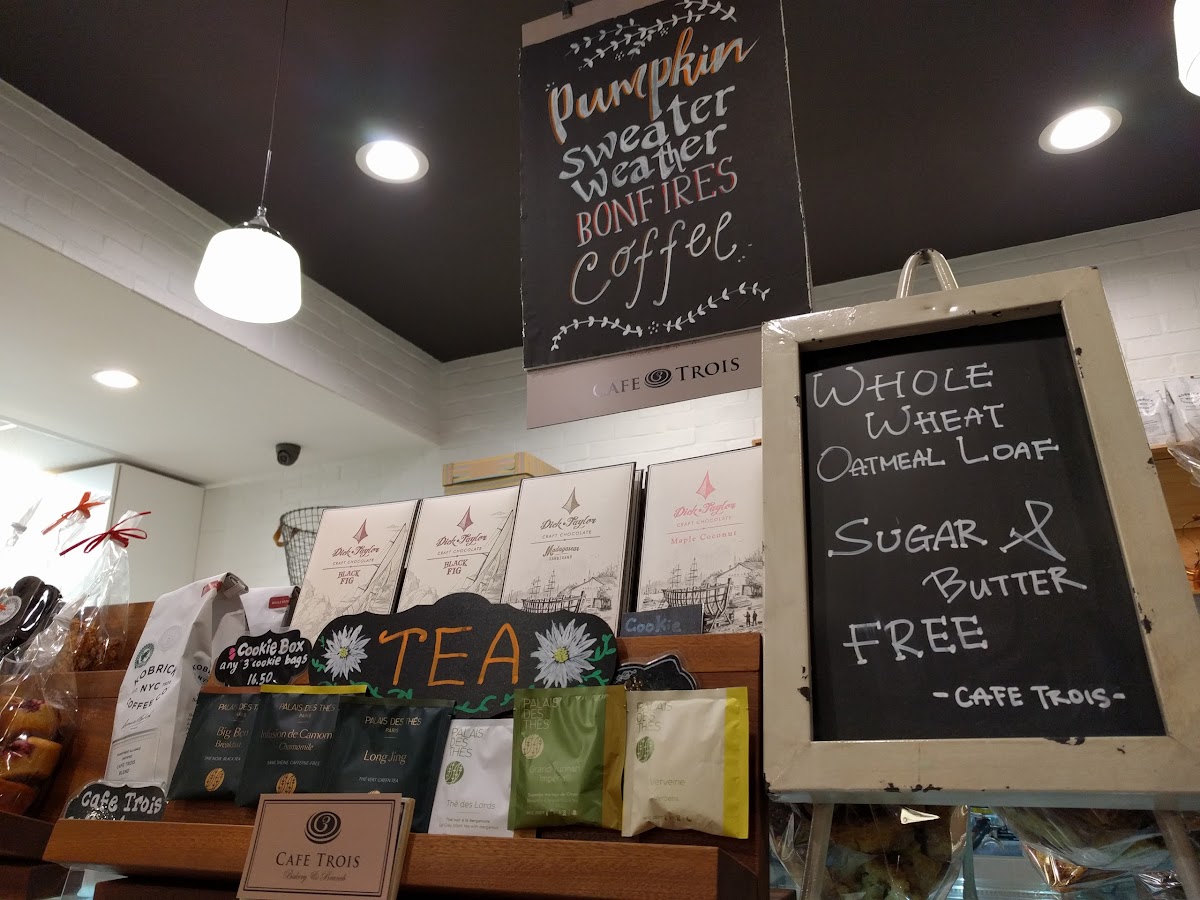 Pumpkin
sweater
weather
BONFIRES
Coffee
CAFE TROIS
WHOLE
WHEAT
OATMEAL LOAF
SUGAR &
BUTTER
FREE
-CAFE TROIS-
Dick Taylor
CRAFT CHOCOLATE
BLACK
FIG
Dick Taylor
CRAFT CHOCOLATE
BLACK
FIG
Dick Taylor
CRAFT CHOCOLATE
Madagascar
Dick Taylor
CRAFT CHOCOLATE
Maple Coconut
Cookie
TEA
CookieBox
any 3 cookie bags
16.50
KOBRICK
NYC
COFFEE CO
PALAIS DES THÉS
PARIS
Big Ben
Breakfast
PALAIS DES THÉS
PARIS
Infusion de Camom
Chamomile
PALAIS DES THÉS
PARIS
Long Jing
PALAIS
DES
THÉS
Thé des Lords
PALAIS
DES
THÉS
Grand Yunnan
PALAIS
DES
THÉS
Verveine
Cafe Trois
CAFE TROIS
Bakery & Brunch